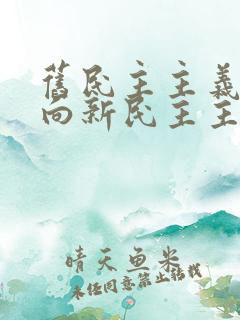 舊民主主義
向新民主主
晴天鱼米
未经同意禁止转载